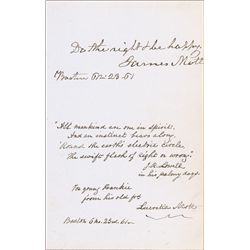 Do the right & be happy.
James Mott
Boston 6th. 23. 61
"All mankind are one in spirit,
And an instinct bears along,
'Round the earth's electric circle,
The swift flash of right or wrong."
J. R. Lowell
in his palmy days.
For young Frankie
from his old frd
Lucretia Mott
Boston 6 mo. 23rd. 61